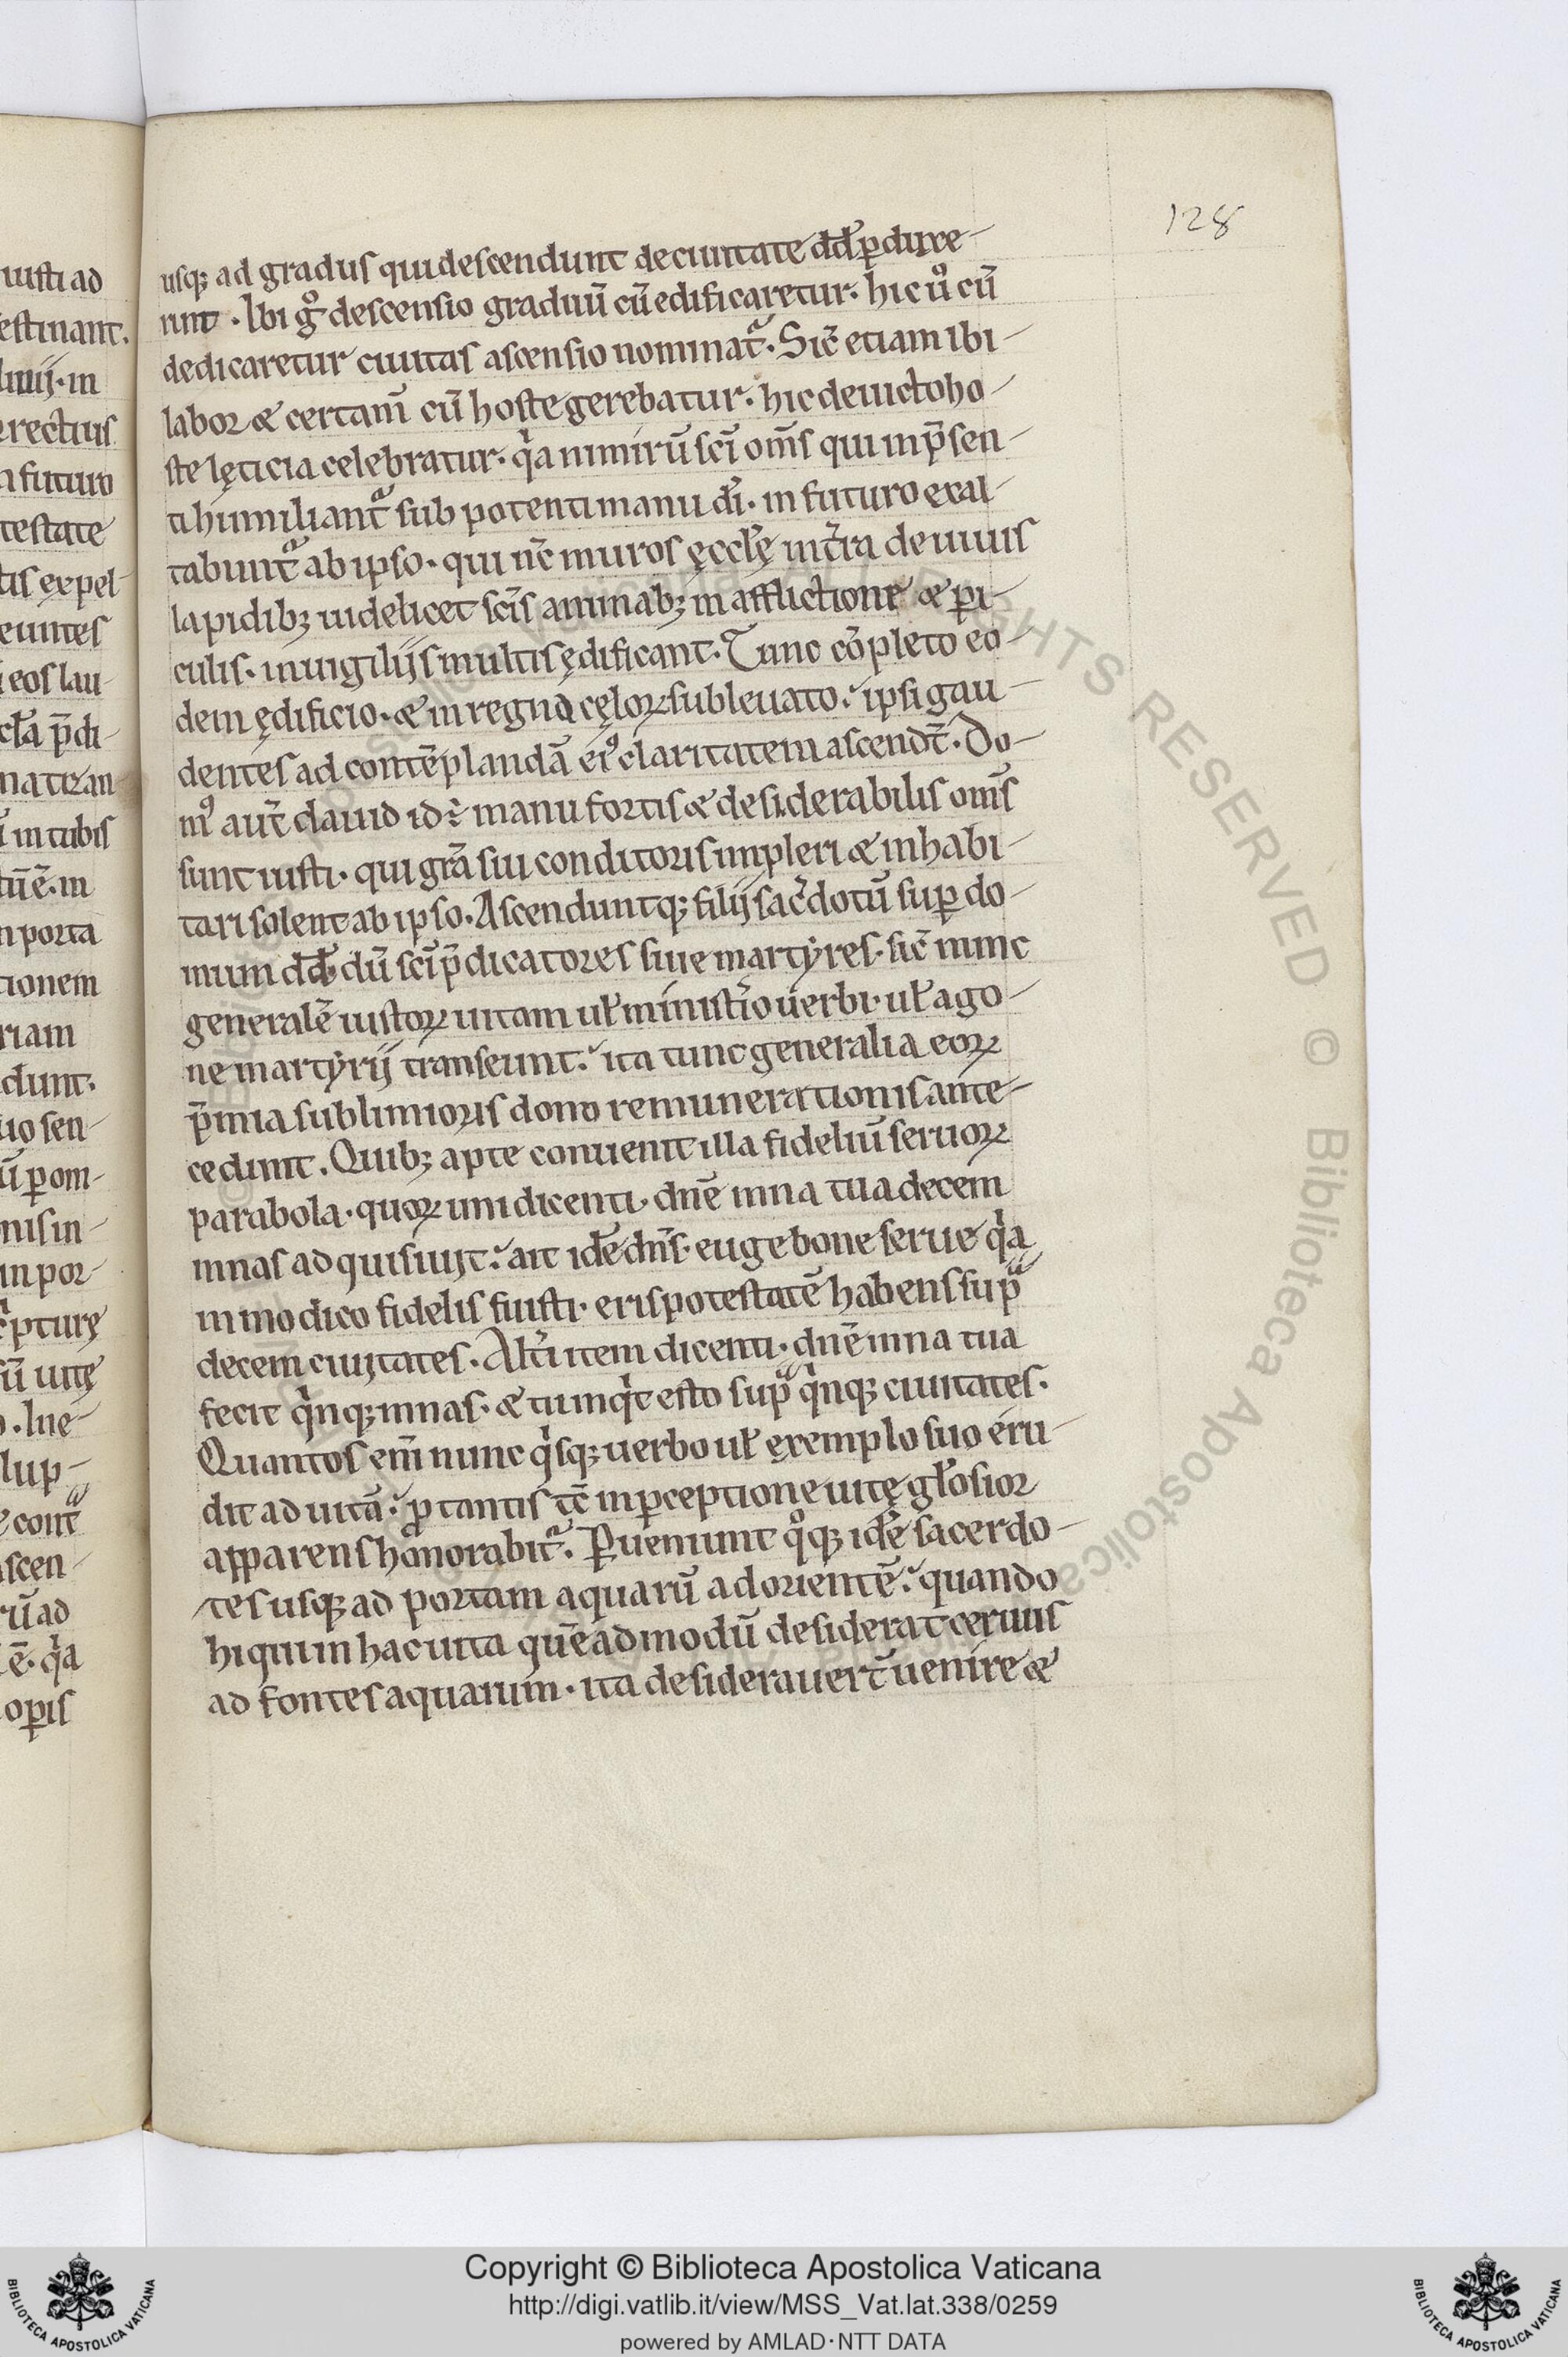 128
usq; ad gradus qui descendunt de ciuitate dd̄ ꝑduxe-
runt . Ibi gͦ descensio graduū cū edificaretur. hic u̾ cū
dedicaretur ciuitas ascensio nominat᷑. Sic̄ etiam ibi-
labor & certam̄ cū hoste gerebatur. hic deuicto ho-
ste lęticia celebratur. qⁱa nimirū sc̄i om̄s qui in p̄sen-
ti humiliant᷑ sub potenti manu dī. in futuro exal-
tabunt᷑ ab ipso. qui nc̄ muros ęccłę int̄ra de uiuis
lapidib; uidelicet sc̄is animab; in afflictione & ꝑi-
culis. in uigilijs multis ędificant. Tunc cōpleto eo-
dem ędificio. & in regna cęloꝝ subleuato. ipsi gau-
dentes ad contēplandā eiꝰ claritatem ascendt̄. Do-
mꝰ aut̄ dauid id ÷ manu fortis & desiderabilis om̄s
sunt iusti. qui gr̄a sui conditoris impleri & inhabi-
tari solent ab ipso. Ascenduntq; filij sac̄dotū suꝑ do-
mum dd̄ dū sc̄i p̄dicatores siue martyres. sic̄ nunc
generalē iustoꝝ uitam uł ministⁱo uerbi. uł ago-
ne martyrij transeunt. ita tunc generalia eoꝝ
p̄mia sublimioris dono remunerationis ante-
cedunt. Quib; apte conuenit illa fideliū seruoꝝ
parabola. quoꝝ uni dicenti. dn̄e mna tua decem
mnas adquisiuit. ait idē dn̄s. euge bone serue qⁱa
in modico fidelis fuisti. eris potestatē habens sup̷ᷓ
decem ciuitates. Alt̄i item dicenti. dn̄e mna tua
fecit qⁱnq; mnas. & tu inqⁱt esto supᷓ qⁱnq; ciuitates.
Quantos em̄ nunc qⁱsq; uerbo uł exemplo suo eru-
dit ad uitā. ꝓ tantis tc̄ in ꝑceptione uitę głosior
apparens honorabit᷑. Ꝑueniunt qͦq; idē sacerdo-
tes usq; ad portam aquarū ad orientē. quando
hi qui in hac uita quēadmodū desiderat ceruus
ad fontes aquarum. ita desiderauert̄ uenire &
iusti ad
estinant.
in
rectius
futuro
testate
tis expel-
euntes
eos lau-
in tubis
in
porta
tionem
riam
dunt.
uo sen-
nis in-
in por-
scen-
ꝑis
© Biblioteca Apostolica Vaticana ALL RIGHTS RESERVED
Copyright © Biblioteca Apostolica Vaticana
http://digi.vatlib.it/view/MSS_Vat.lat.338/0259
powered by AMLAD·NTT DATA
BIBLIOTECA APOSTOLICA VATICANA
BIBLIOTECA APOSTOLICA VATICANA